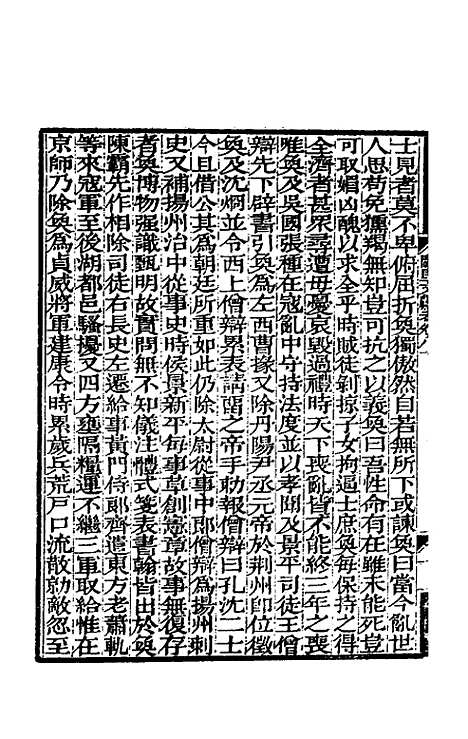 士見者莫不卑俯屈折奐獨傲然自若無所下或諫奐曰當今亂世
人思苟免獯羯無知豈可抗之以義奐曰吾性命有在雖未能死豈
可取媚凶醜以求全乎時賊徒剝掠子女拘逼士庶奐每保持之得
全濟者甚衆尋遭母憂哀毀過禮時天下喪亂皆不能終三年之喪
唯奐及吳國張種在寇亂中守持法度並以孝聞及景平司徒王僧
辯先下辟書引奐爲左西曹掾又除丹陽尹丞元帝於荆州卽位徵
奐及沈烱並令西上僧辯累表請畱之帝手勅報僧辯曰孔沈二士
今且借公其爲朝廷所重如此仍除太尉從事中郎僧辯爲揚州刺
史又補揚州治中從事史時侯景新平每事草創憲章故事無復存
者奐博物强識甄明故實問無不知儀注體式箋表書翰皆出於奐
陳霸先作相除司徒右長史左遷給事黃門侍郎齊遣東方老蕭軌
等來寇軍至後湖都邑騷擾又四方壅隔糧運不繼三軍取給惟在
京師乃除奐爲貞威將軍建康令時累歲兵荒戸口流散勍敵忽至